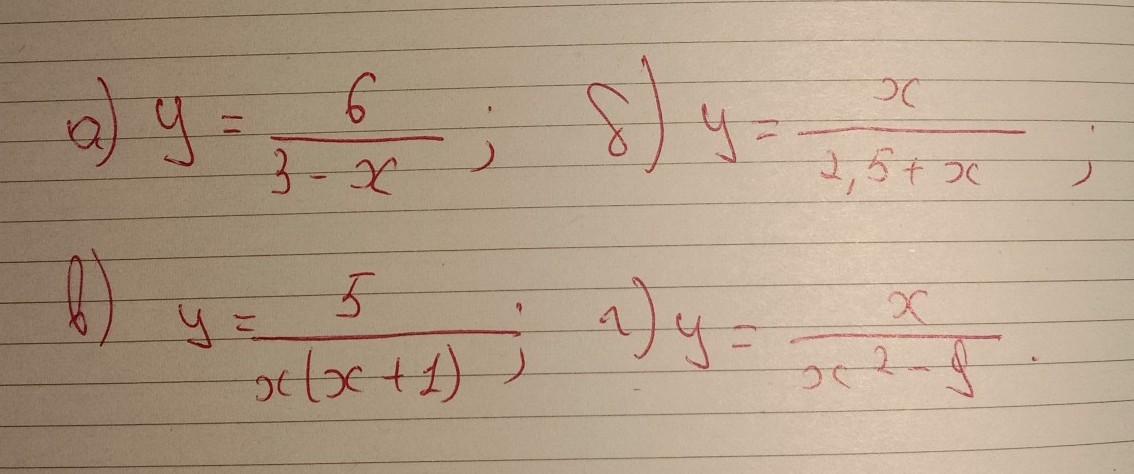 а) y = 6/(3 - x); б) y = x/(2,5 + x);
в) y = 5/(x(x + 1)); г) y = x/(x² - 9).